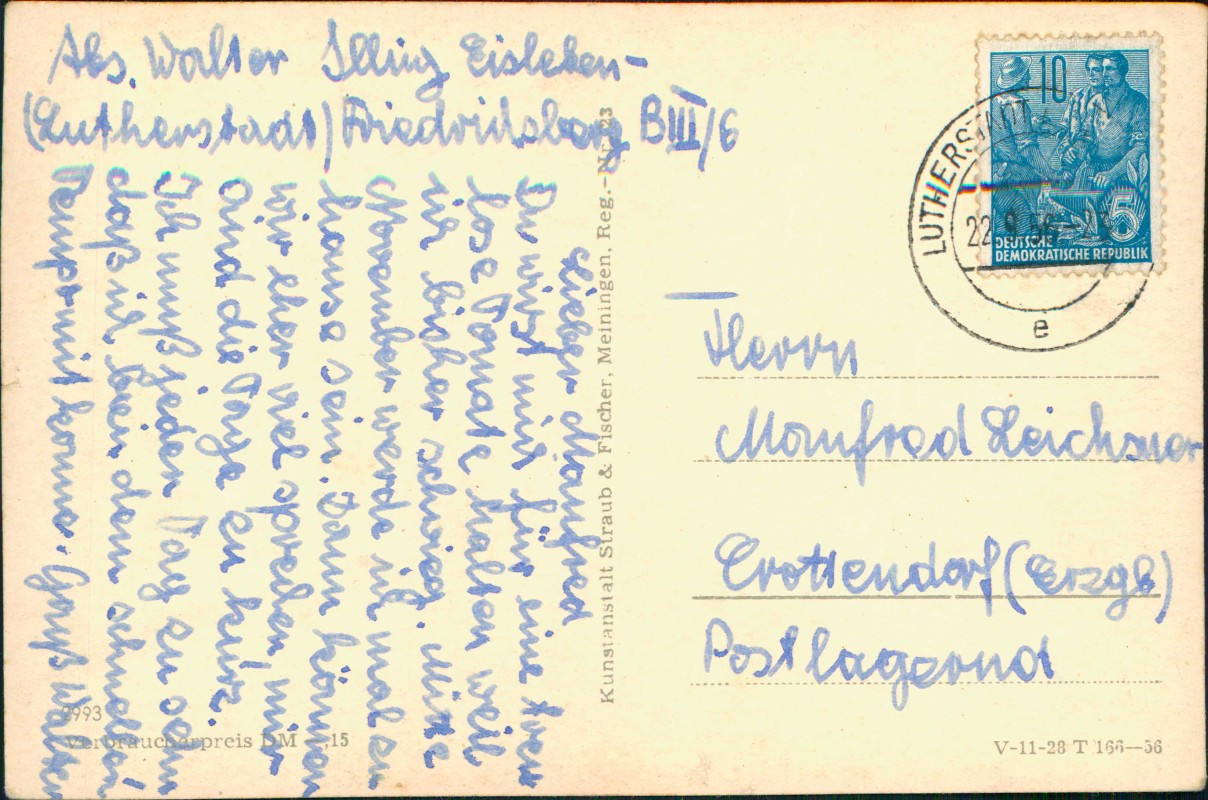 Abs. Walter Illing Eisleben-
(Lutherstadt) Friedrichsberg BIII/6
Lieber Manfred
Du wirst mich für eine treu
lose Tomate halten weil
ich bisher schwieg. Mitte
November werde ich mal zu
hause sein. Dann können
wir eher viel sprechen, mir
sind die Tage zu kurz.
Ich muß jeden Tag zu sehn
daß ich bei dem schnellen
Tempo mit komme. Gruß Walter
Kunstanstalt Straub & Fischer, Meiningen, Reg.-Nr. 23
2993
Verbraucherpreis DM ,15
10
5
DEUTSCHE
DEMOKRATISCHE REPUBLIK
LUTHERSTADT
22.9.56-21
e
Herrn
Manfred Leichsner
Crottendorf (Erzgb)
Postlagernd
V-11-28 T 166—56